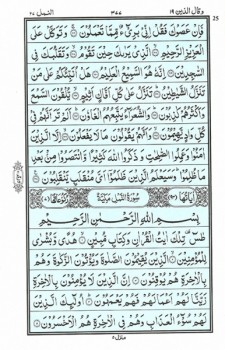 وقال الذين ١٩ ٣٧٧ النمل ٢٧
فَإِنْ عَصَوْكَ فَقُلْ إِنِّي بَرِيءٌ مِّمَّا تَعْمَلُونَ ۝ وَتَوَكَّلْ عَلَى
الْعَزِيزِ الرَّحِيمِ ۝ الَّذِي يَرَاكَ حِينَ تَقُومُ ۝ وَتَقَلُّبَكَ فِي
السَّاجِدِينَ ۝ إِنَّهُ هُوَ السَّمِيعُ الْعَلِيمُ ۝ هَلْ أُنَبِّئُكُمْ عَلَى مَنْ
تَنَزَّلُ الشَّيَاطِينُ ۝ تَنَزَّلُ عَلَى كُلِّ أَفَّاكٍ أَثِيمٍ ۝ يُلْقُونَ السَّمْعَ
وَأَكْثَرُهُمْ كَاذِبُونَ ۝ وَالشُّعَرَاءُ يَتَّبِعُهُمُ الْغَاوُونَ ۝ أَلَمْ تَرَ أَنَّهُمْ فِي
كُلِّ وَادٍ يَهِيمُونَ ۝ وَأَنَّهُمْ يَقُولُونَ مَا لَا يَفْعَلُونَ ۝ إِلَّا الَّذِينَ
آمَنُوا وَعَمِلُوا الصَّالِحَاتِ وَذَكَرُوا اللَّهَ كَثِيرًا وَانْتَصَرُوا مِنْ بَعْدِ
مَا ظُلِمُوا وَسَيَعْلَمُ الَّذِينَ ظَلَمُوا أَيَّ مُنْقَلَبٍ يَنْقَلِبُونَ ۝
سُورَةُ النَّمْلِ مَكِّيَّةٌ
بِسْمِ اللَّهِ الرَّحْمَنِ الرَّحِيمِ
طس تِلْكَ آيَاتُ الْقُرْآنِ وَكِتَابٍ مُّبِينٍ ۝ هُدًى وَبُشْرَى
لِلْمُؤْمِنِينَ ۝ الَّذِينَ يُقِيمُونَ الصَّلَاةَ وَيُؤْتُونَ الزَّكَاةَ وَهُمْ
بِالْآخِرَةِ هُمْ يُوقِنُونَ ۝ إِنَّ الَّذِينَ لَا يُؤْمِنُونَ بِالْآخِرَةِ
زَيَّنَّا لَهُمْ أَعْمَالَهُمْ فَهُمْ يَعْمَهُونَ ۝ أُولَئِكَ الَّذِينَ
لَهُمْ سُوءُ الْعَذَابِ وَهُمْ فِي الْآخِرَةِ هُمُ الْأَخْسَرُونَ ۝
منزل ٥
25